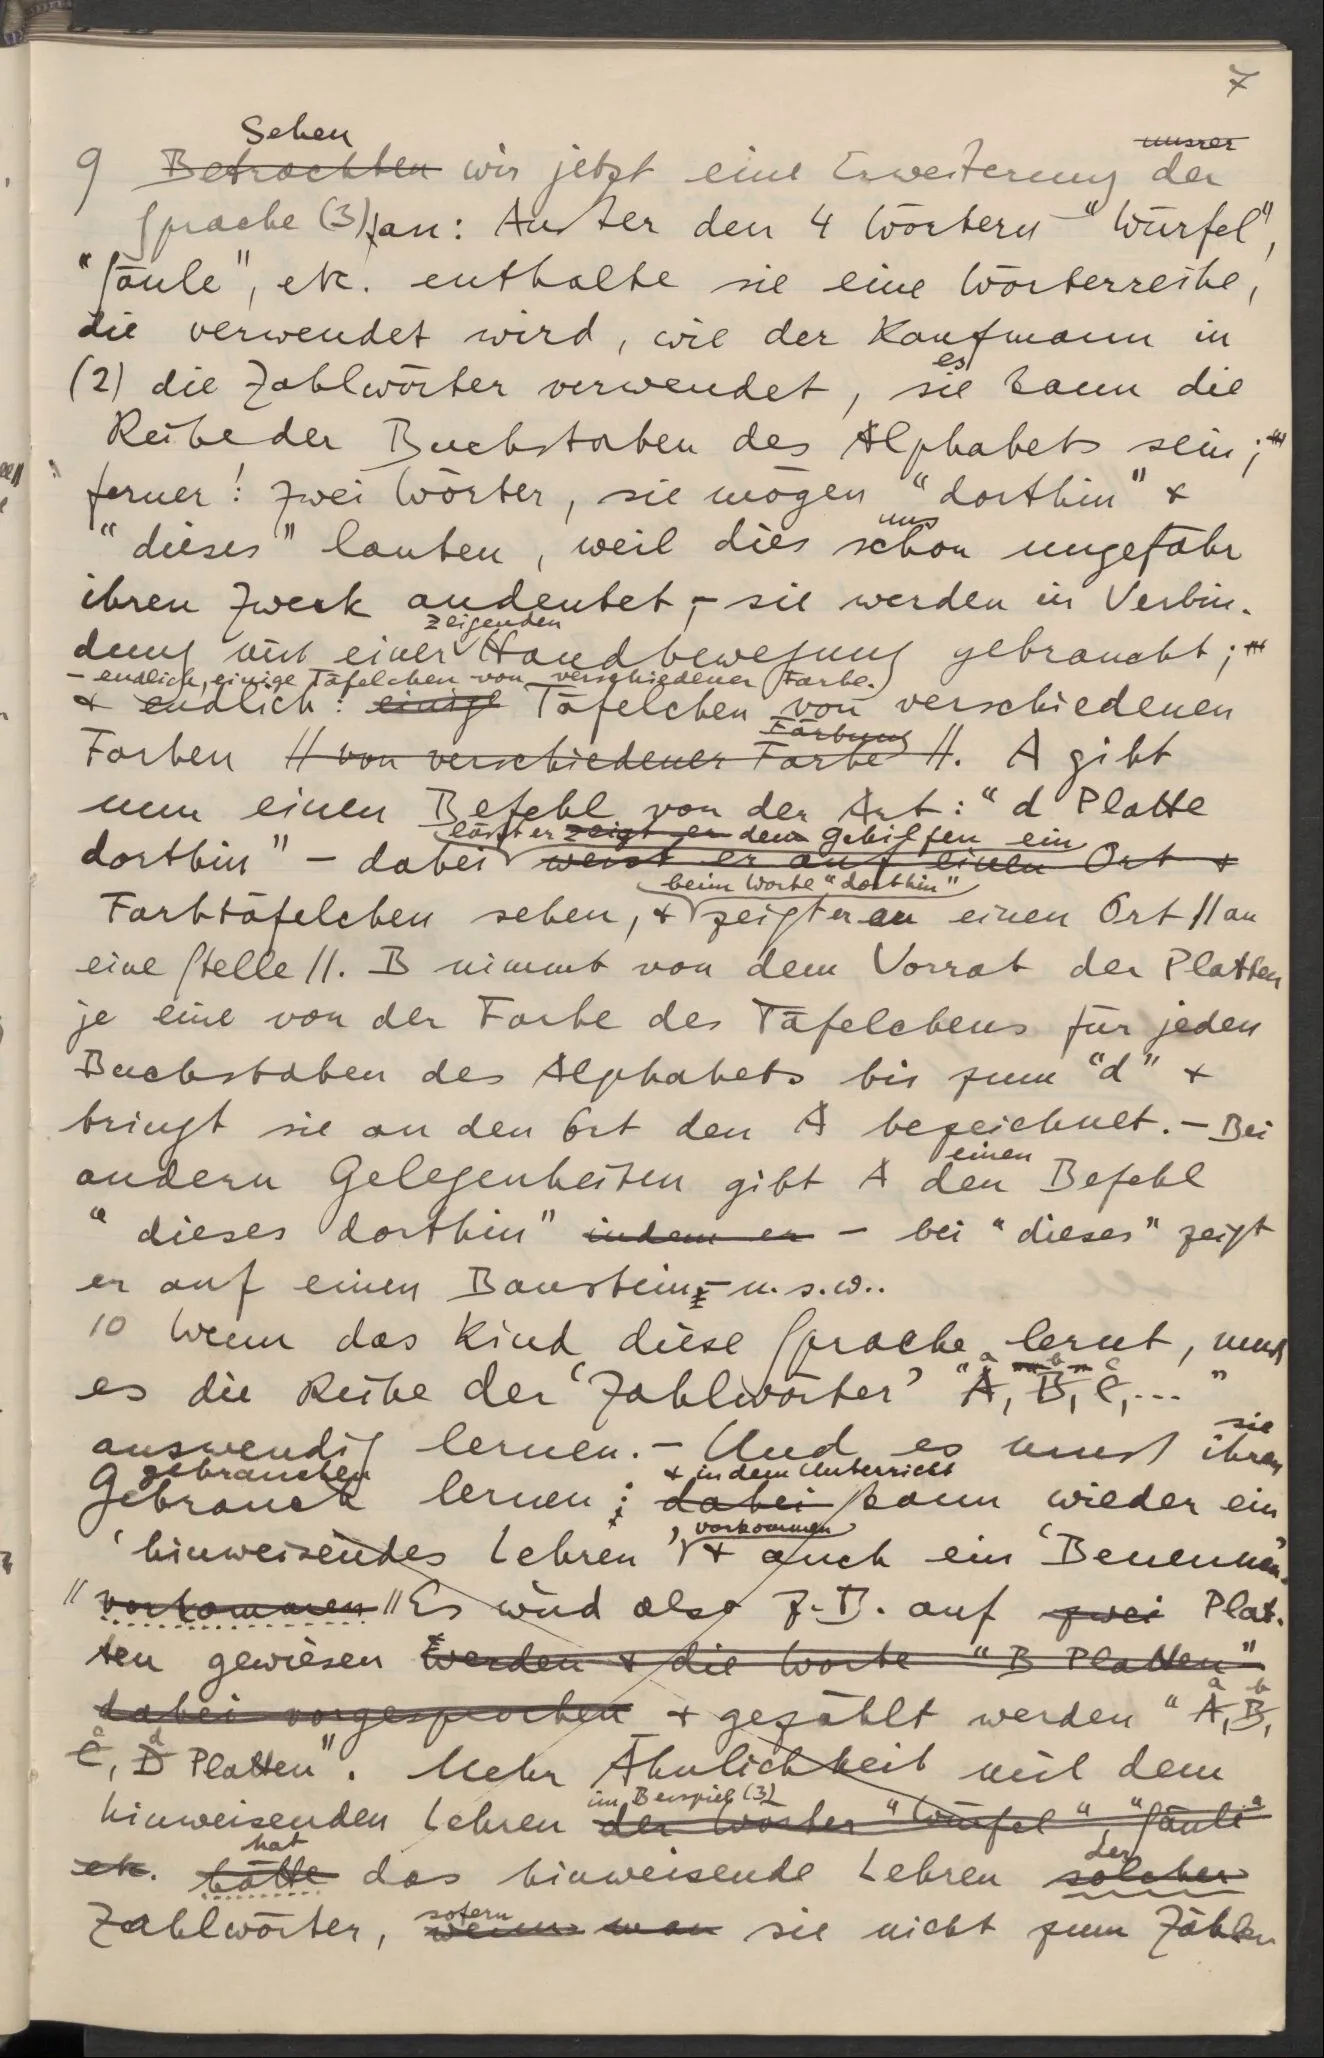 7
Sehen unsrer
9 Betrachten wir jetzt eine Erweiterung der
Sprache (3) an: Außer den 4 Wörtern "Würfel",
"Säule", etc. enthalte sie eine Wörterreihe,
die verwendet wird, wie der Kaufmann in
es
(2) die Zahlwörter verwendet, sie kann die
Reihe der Buchstaben des Alphabets sein;
ferner: zwei Wörter, sie mögen "dorthin" &
uns
"dieses" lauten, weil dies schon ungefähr
ihren Zweck andeutet, – sie werden in Verbin-
zeigenden
dung mit einer Handbewegung gebraucht;
– endlich, einige Täfelchen von verschiedener Farbe.
& endlich: einige Täfelchen von verschiedenen
Färbung
Farben // von verschiedener Farbe //. A gibt
nun einen Befehl von der Art: "d Platte
läßt er zeigt er dem Gehilfen ein
dorthin" – dabei weist er auf einen Ort &
beim Worte "dorthin"
Farbtäfelchen sehen, & zeigt er an einen Ort // an
eine Stelle //. B nimmt von dem Vorrat der Platten
je eine von der Farbe des Täfelchens für jeden
Buchstaben des Alphabets bis zum "d" &
bringt sie an den Ort den A bezeichnet. – Bei
einen
andern Gelegenheiten gibt A den Befehl
"dieses dorthin" indem er – bei "dieses" zeigt
er auf einen Baustein – u.s.w..
10 Wenn das Kind diese Sprache lernt, muß
a b c
es die Reihe der 'Zahlwörter' "A, B, C, ... "
sie
auswendig lernen. – Und es muß ihren
gebrauchen & in dem Unterricht
Gebrauch lernen; dabei kann wieder ein
, vorkommen
'hinweisendes Lehren' & auch ein 'Benennen'
"vorkommen" // Es wird also z.B. auf zwei Plat-
ten gewiesen werden & die Worte "B Platten"
a b
dabei vorgesprochen & gezählt werden "A, B,
c d
C, D Platten". Mehr Ähnlichkeit mit dem
im Beispiel (3)
hinweisenden Lehren der Wörter "Würfel", "Säule"
hat der
etc. hätte das hinweisende Lehren solcher
sofern
Zahlwörter, wenn man sie nicht zum Zählen